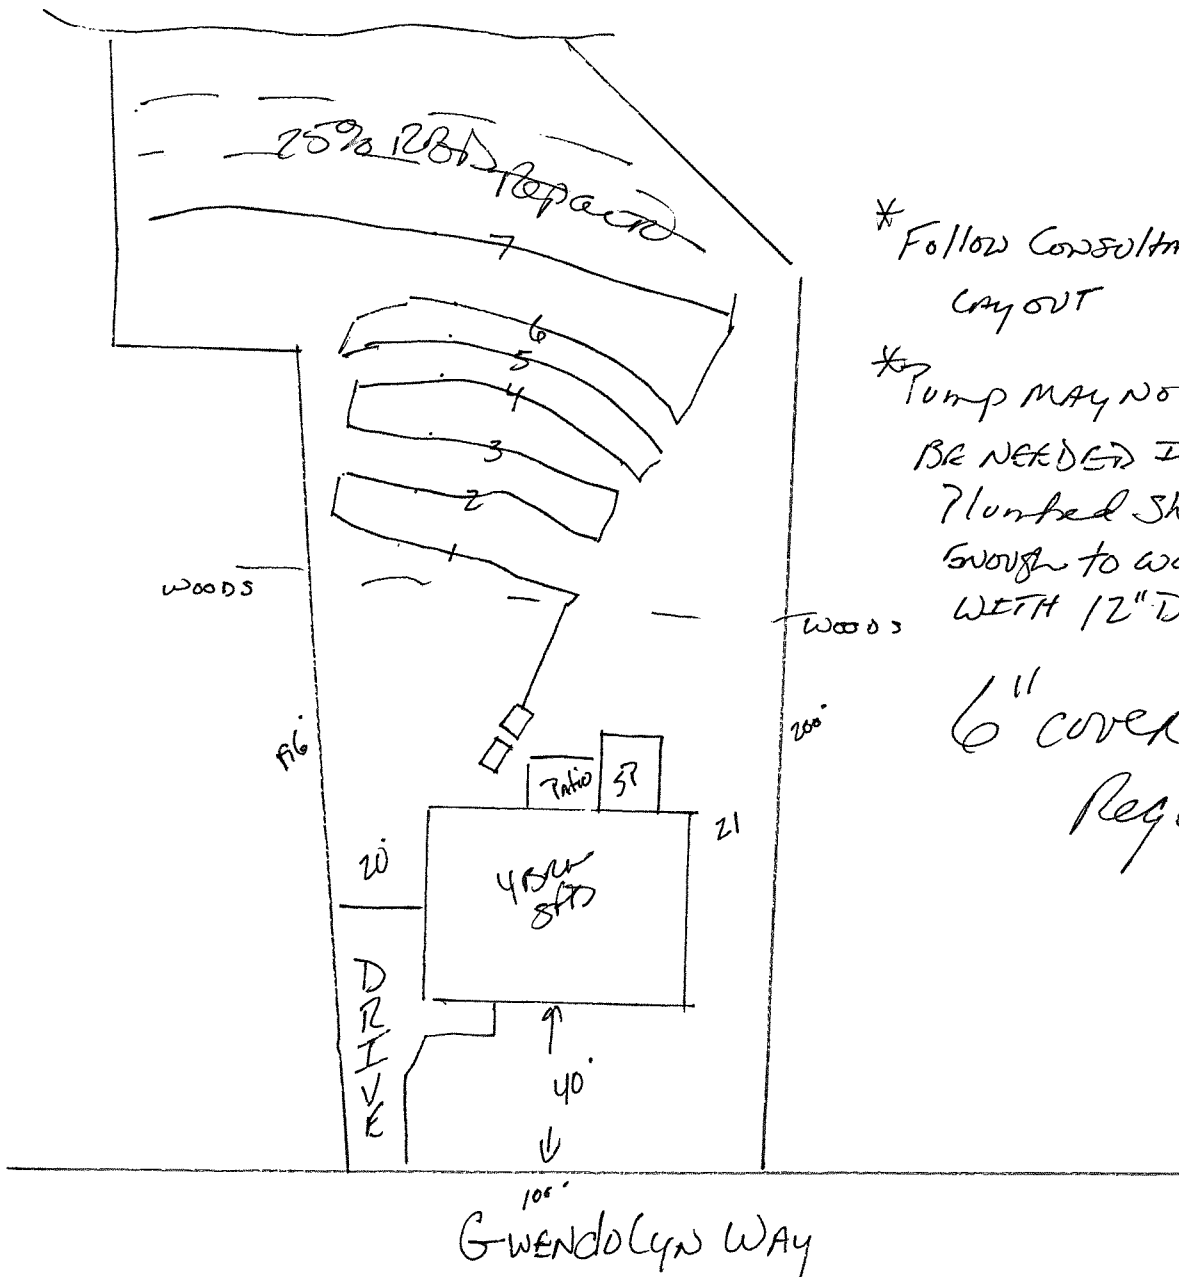 25% RED
7
6
5
4
3
2
1
WOODS
WOODS
200'
Patio
SP
21
20'
4 BRM
SFD
DRIVE
40'
100'
GWENDOLYN WAY
* Follow CONSULTA
LAYOUT
* Pump MAY NO
BE NEEDED I
Plumbed Sh
ENOUGH to wo
WITH 12" D
6" COVER
Req